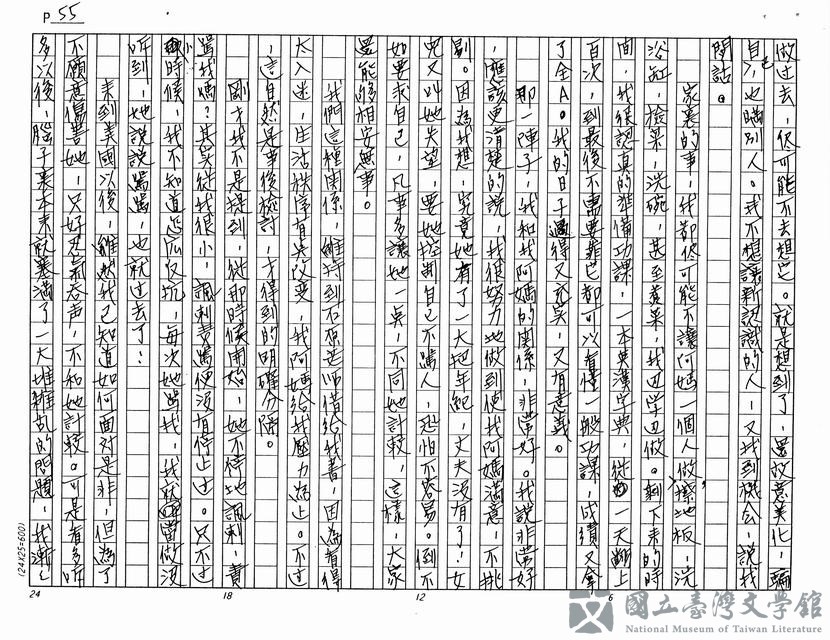 P 55
做过去，尽可能不去想它。就是想到了，還故意美化，騙
自己，也瞞別人。我不想讓新認識的人，又找到機会，說我
閒話。
家裏的事，我都尽可能不讓阿媽一個人做，擦地板，洗
浴缸，撿菜，洗碗，甚至煮菜，我边学边做。剩下來的時
間，我很認真的準備功課，一本英漢字典，從一天翻上
百次，到最後不需要靠它都可以看懂一般功課，成績又拿
了全A。我的日子過得又充实，又有意義。
那一陣子，我和我阿媽的関係，非常好。我說非常好
，應該更清楚的說，我很努力地做到使我阿媽滿意，不挑
剔。因為我想，究竟她有了一大把年紀，丈夫沒有了，女
兒又叫她失望，要她控制自己不罵人，恐怕不容易。倒不
如要求自己，凡事多讓她一点，不同她計較，這樣，大家
還能夠相安無事。
我們這種関係，維持到石原老师借給我書，因為看得
太入迷，生活秩序有点改变，我阿媽給我壓力為止。不过
，這自然是事後檢討，才得到的明確分隔。
剛才我不是提到，從那時候開始，她不停地諷刺，責
罵我嗎？其实從我很小，諷刺責罵便沒有停止过。只不过
小時候，我不知道怎麼反抗，每次她罵我，我就當做沒
听到，她說說罵罵，也就过去了？
來到美國以後，雖然我已知道如何面对是非，但為了
不願意傷害她，只好忍氣吞声，不和她計較。可是看多听
多以後，腦子裏本來就塞滿了一大堆雜乱的問題，我漸漸
24
18
12
6
(24X25=600)
國立臺灣文學館
National Museum of Taiwan Literature